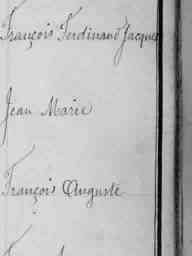 François Ferdinand Jacques
Jean Marie
François Auguste